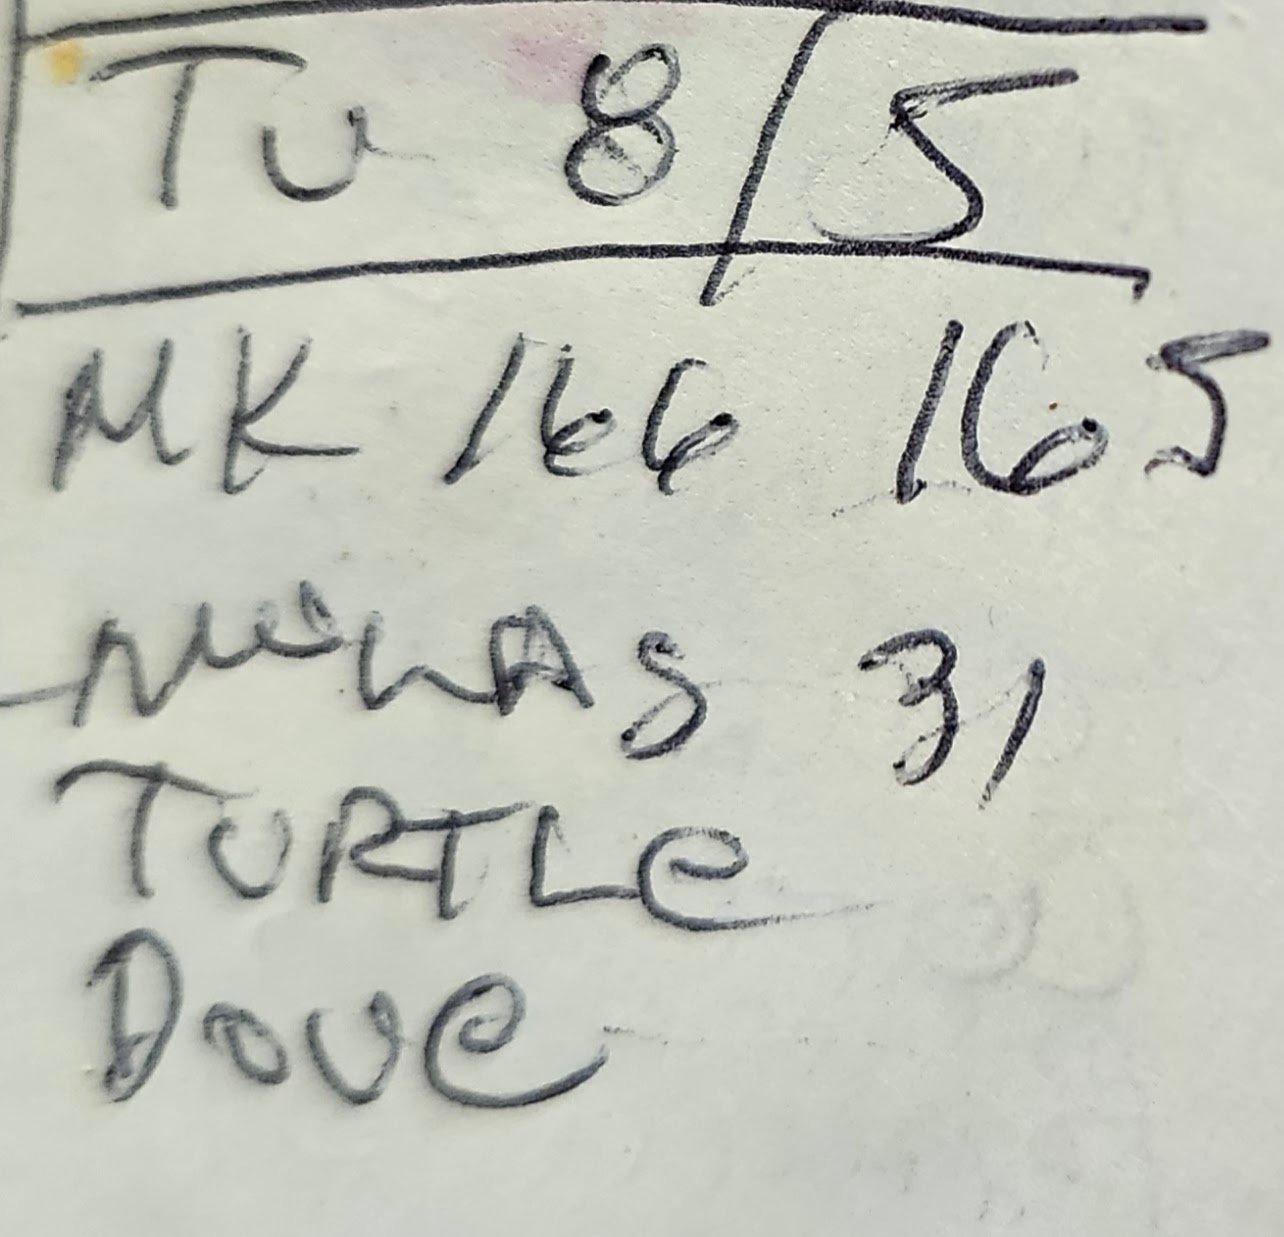 Tu 8/5
MK 166 165
31
TURTLE
DOVE